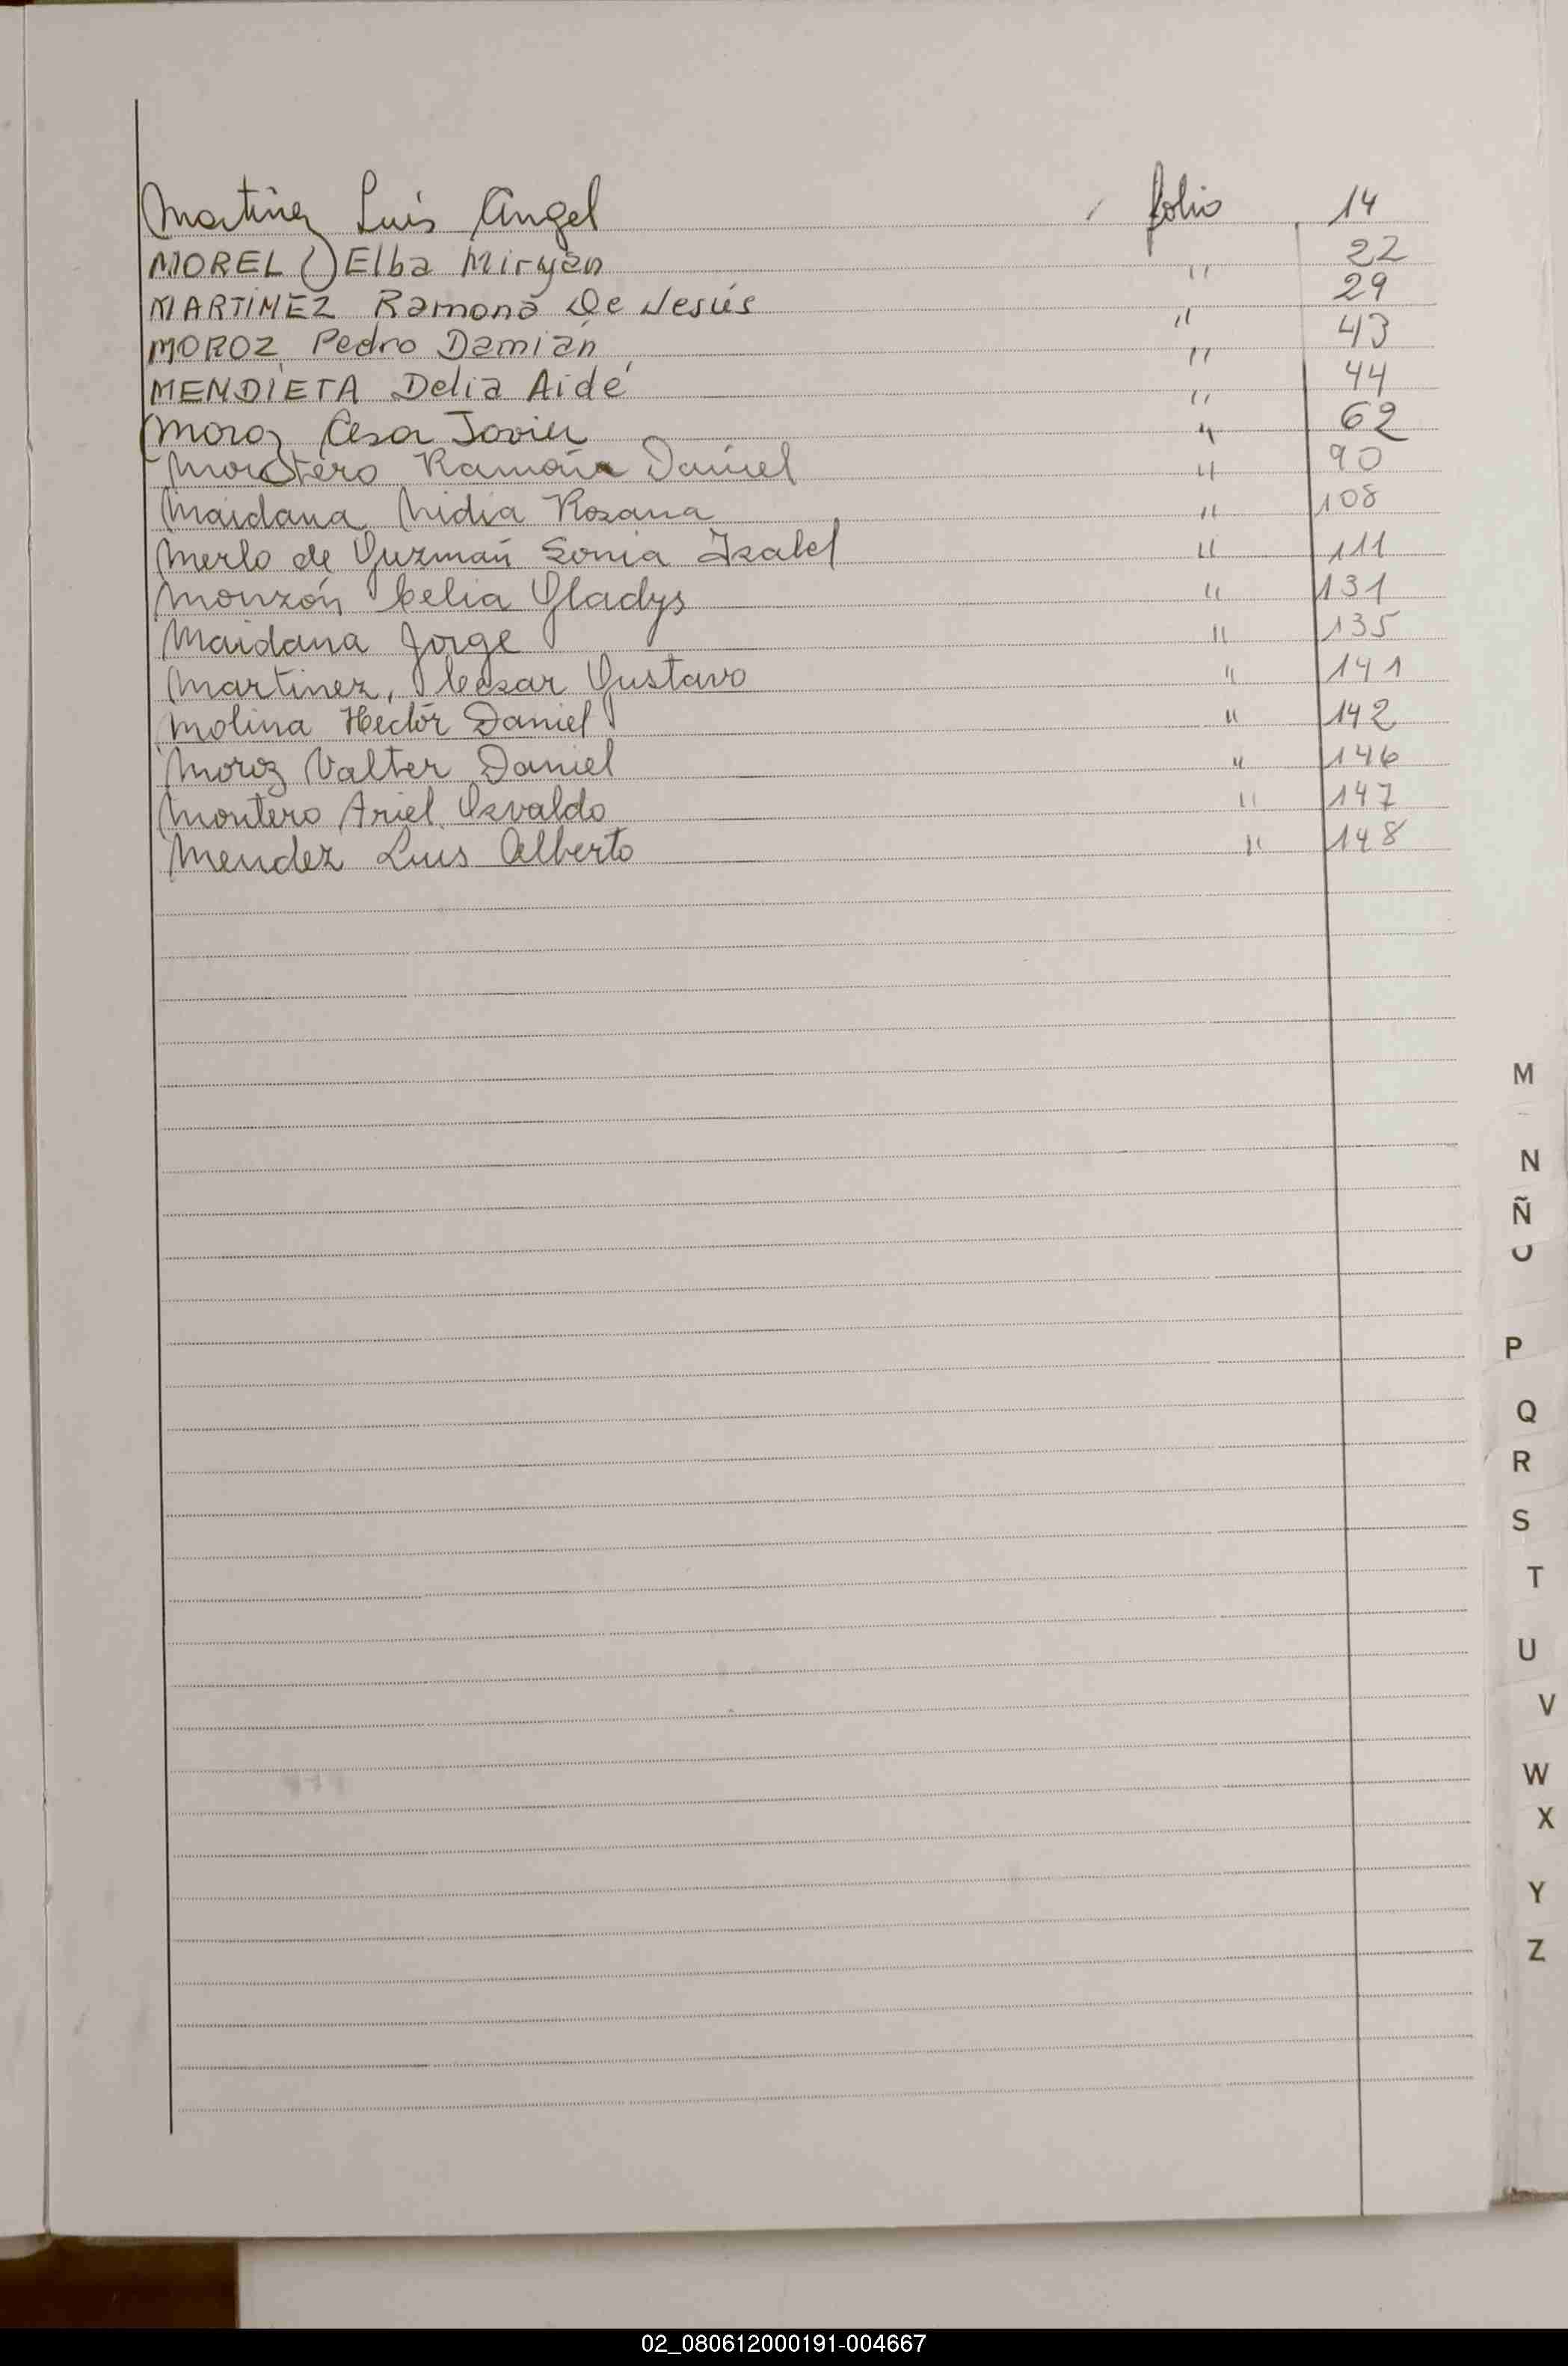 Martinez Luis Angel folio 14
MOREL () Elba Miryan " 22
MARTINEZ Ramona De Jesús " 29
MOROZ Pedro Damián " 43
MENDIETA Delia Aidé " 44
Moroz Cesar Javier " 62
Daniel " 90
Maidana Nidia Rosana " 108
Merlo de Guzmán Sonia Isabel " 111
Monzón Celia Gladys " 131
Maidana Jorge " 135
Martinez, Cesar Gustavo " 141
Molina Hector Daniel " 142
Moroz Valter Daniel " 146
Montero Ariel Osvaldo " 147
Mendez Luis Alberto " 148
M
N
Ñ
P
Q
R
S
T
U
V
W
X
Y
Z
02_080612000191-004667